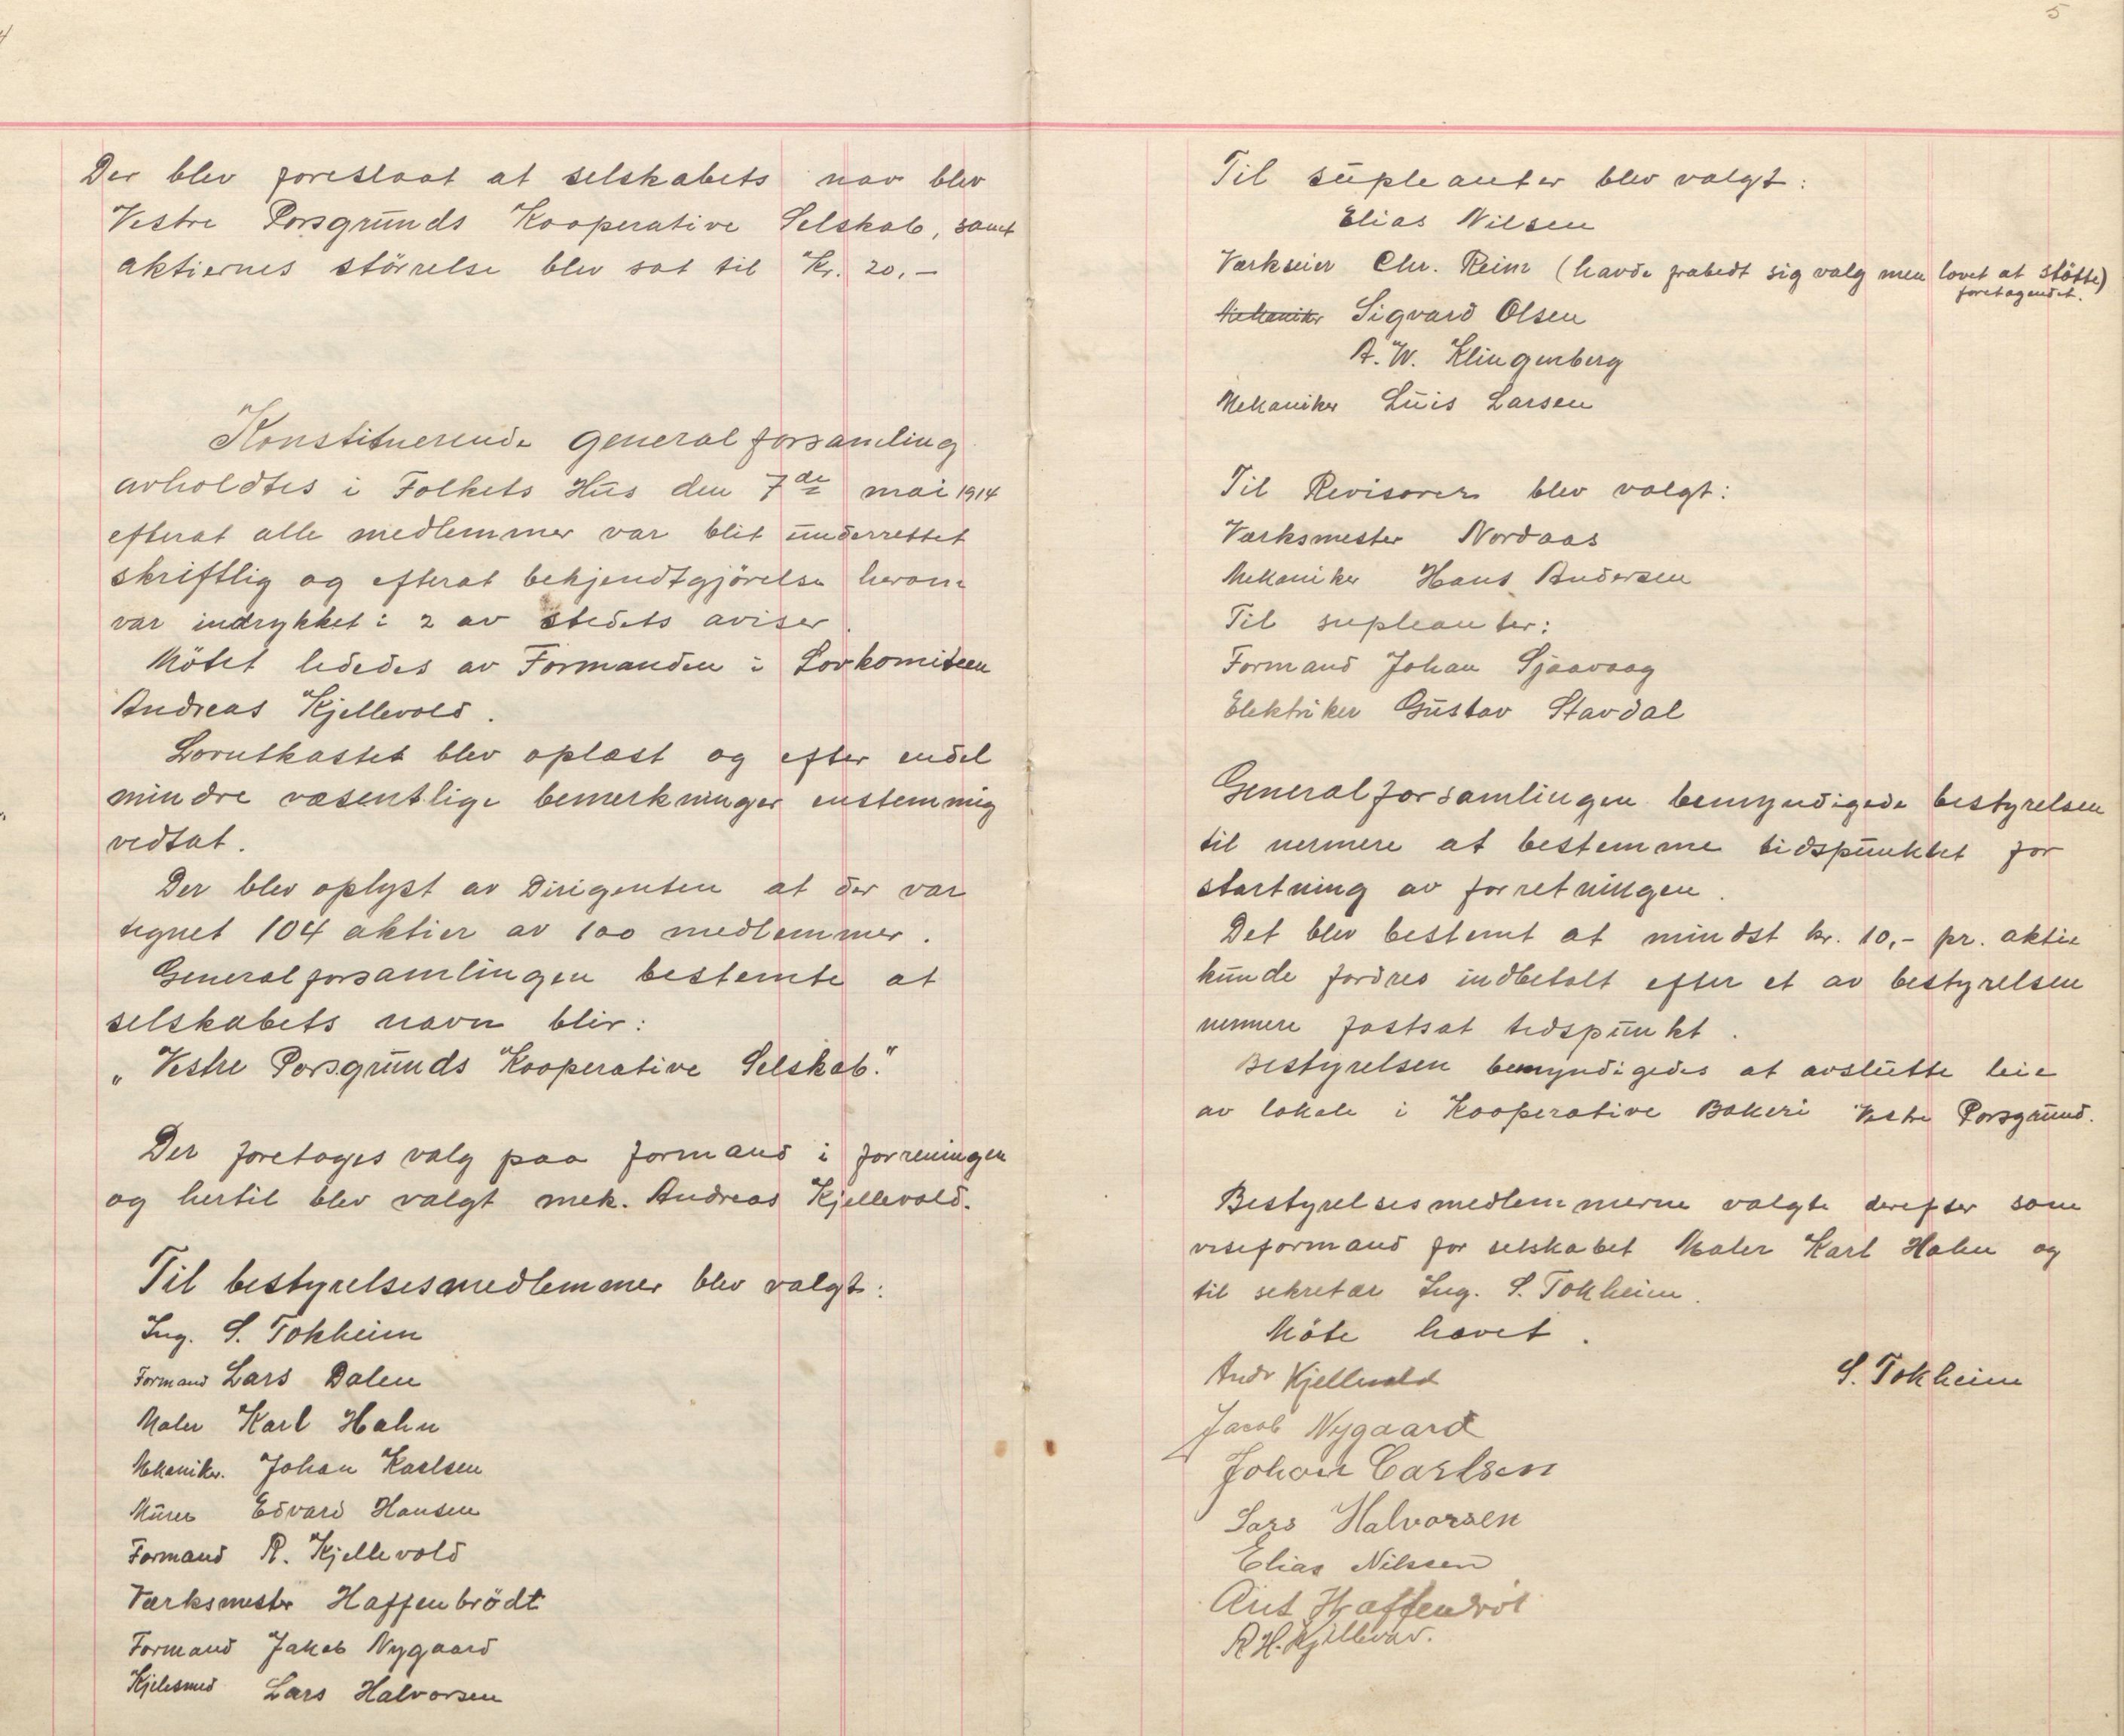 4
Der blev foreslaat at selskabets nav blev
Vestre Porsgrunds Kooperative Selskab, samt
aktiernes störrelse blev sat til Kr. 20,-
Konstituerende generalforsamling
avholdtes i Folkets Hus den 7de mai 1914
efterat alle medlemmer var blit underrettet
skriftlig og efterat bekjendtgjörelse herom
var indrykket i 2 av stedets aviser.
Mötet lededes av Formanden i Lovkomiteen
Andreas Kjellevold.
Lovutkastet blev oplæst og efter endel
mindre væsentlige bemerkninger enstemmig
vedtat.
Der blev oplyst av Dirigenten at der var
tegnet 104 aktier av 100 medlemmer.
Generalforsamlingen bestemte at
selskabets navn blir:
„Vestre Porsgrunds Kooperative Selskab."
Der foretoges valg paa formand i forreningen
og hertil blev valgt mek. Andreas Kjellevold.
Til bestyrelsesmedlemmer blev valgt:
Ing. S. Tokheim
Formand Lars Dalen
Maler Karl Hahn
Mekaniker. Johan Karlsen
Murer Edvard Hansen
Formand R. Kjellevold
Værksmester Haffenbrödt
Formand Jakob Nygaard
Kjelesmed Lars Halvorsen
5
Til supleanter blev valgt:
Elias Nilsen
Værkseier Chr. Reim (havde frabedt sig valg men lovet at stötte)
foretagendet.
Mekaniker Sigvard Olsen
A. W. Klingenberg
Mekaniker Luis Larsen
Til Revisorer blev valgt:
Værksmester Nordaas
Mekaniker Hans Andersen
Til supleanter:
Formand Johan Sjaavaag
Elektriker Gustav Stavdal
Generalforsamlingen bemyndigede bestyrelsen
til nermere at bestemme tidspunktet for
startning av forretningen.
Det blev bestemt at mindst kr. 10,- pr. aktie
kunde fordres indbetalt efter et av bestyrelsen
nermere fastsat tidspunkt.
Bestyrelsen bemyndigedes at avslutte leie
av lokale i Kooperative Bakeri Vestre Porsgrund.
Bestyrelsesmedlemmerne valgte derefter som
viseformand for selskabet Maler Karl Hahn og
til sekretær Ing. S. Tokheim.
Möte hævet.
Andr Kjellevold S. Tokheim
Jacob Nygaard
Johan Carlsen
Lars Halvorsen
Elias Nilssen
R H. Kjellevov.